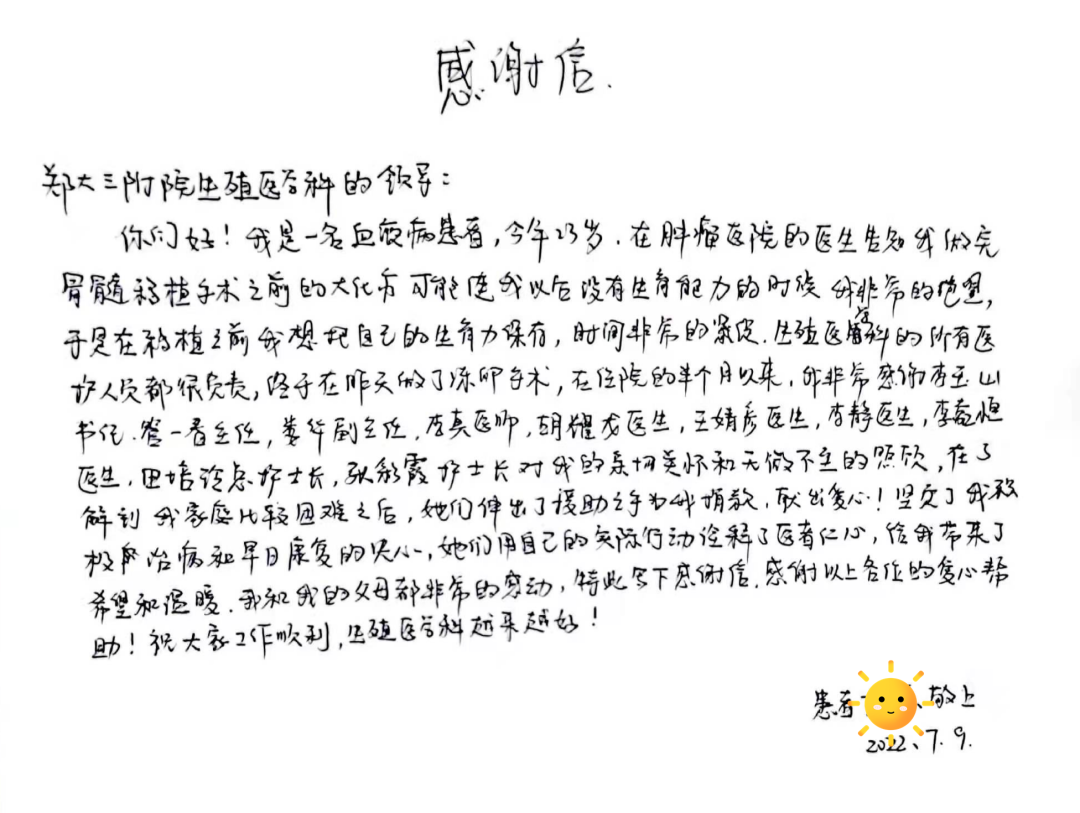 感谢信.
郑大三附院生殖医学科的领导：
你们好！我是一名血液病患者，今年23岁．在肿瘤医院的医生告知我做完
骨髓移植手术之前的大化疗可能使我以后没有生育能力的时候 我非常的绝望，
于是在移植之前我想把自己的生育力保存，时间非常的紧迫．生殖医学科的所有医
护人员都很负责，终于在昨天做了冻卵手术，在住院的半个月以来，我非常感谢李玉山
书记．管一春主任，娄华副主任．李真医师，胡耀龙医生，王婧彦医生，李静医生，李恒
医生．田培玲总护士长，张彩霞护士长对我的亲切关怀和无微不至的照顾，在了
解到 我家庭比较困难之后，她们伸出了援助之手为我捐款．献出爱心！坚定了我积
极治病和早日康复的决心，她们用自己的实际行动诠释了医者仁心，给我带来了
希望和温暖．我和我的父母都非常的感动，特此写下感谢信．感谢以上各位的爱心帮
助！祝大家工作顺利，生殖医学科越来越好！
患者 敬上
2022、7．9．